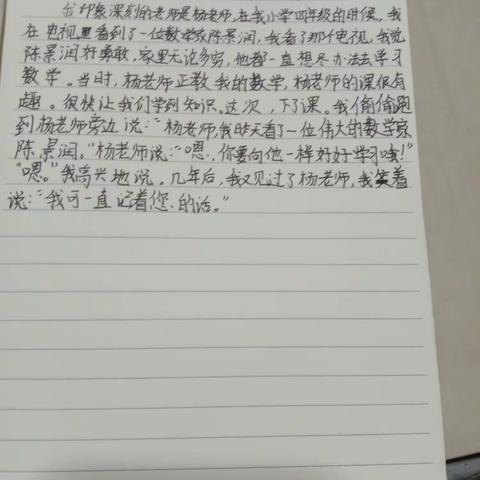 我印象深刻的老师是杨老师,在我小学四年级的时候,我
在电视里看到了一位数学家陈景润,我看了那个电视,我觉
陈景润好勇敢,家里无论多穷,他都一直想尽办法去学习
数学。当时,杨老师正教我的数学,杨老师的课很有
趣。很快让我们学到知识。这次,下了课。我偷偷跑
到杨老师旁边说:“杨老师,我昨天看了一位伟大的数学家
陈景润。”杨老师说:“嗯,你要向他一样好好学习哦!”
“嗯。”我高兴地说。几年后,我又见过了杨老师,我笑着
说:“我可一直记着您的话。”